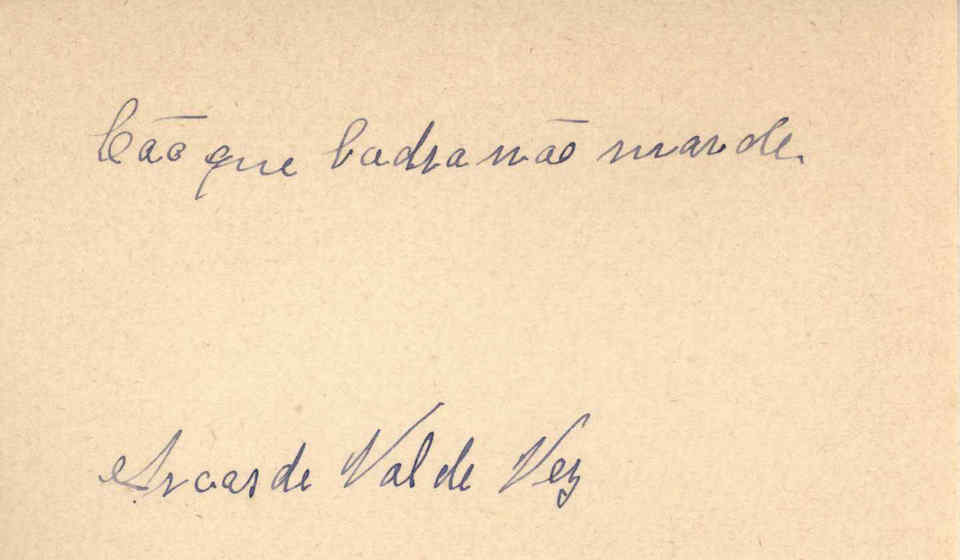 Cão que ladra não morde.
Arcos de Val de Vez